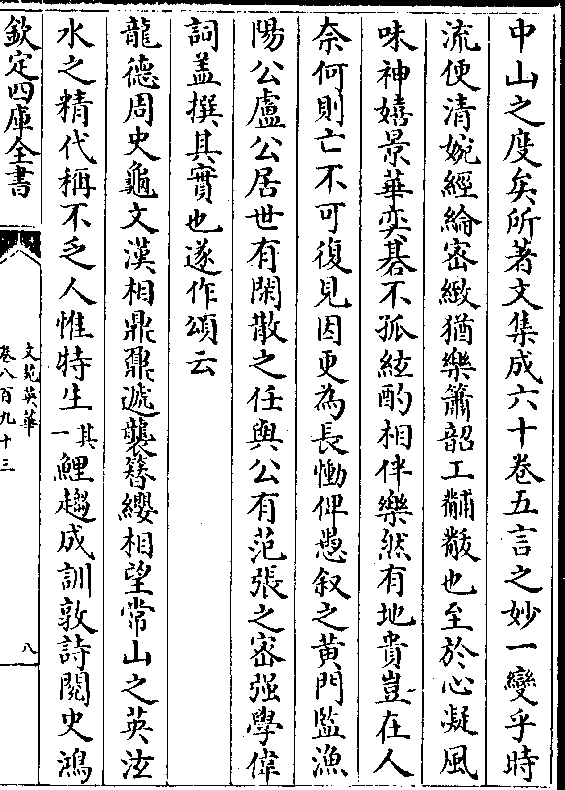 中山之度矣所著文集成六十卷五言之妙一變乎時
流使清婉經綸密緻猶樂簫韶工黼黻也至於心凝風
味神嬉景華奕棊不孤絃酌相伴樂然有地貴豈在人
奈何則亡不可復見因更為長慟俾愚叙之黄門監漁
陽公盧公居世有閑散之任與公有范張之密强學偉
詞盖撰其實也遂作頌云
龍德周史龜文漢相鼎鼐遞襲簪纓相望常山之英汝
水之精代稱不乏人惟特生其一鯉趨成訓敦詩閱史鴻
欽定四庫全書
文苑英華
卷八百九十三
八